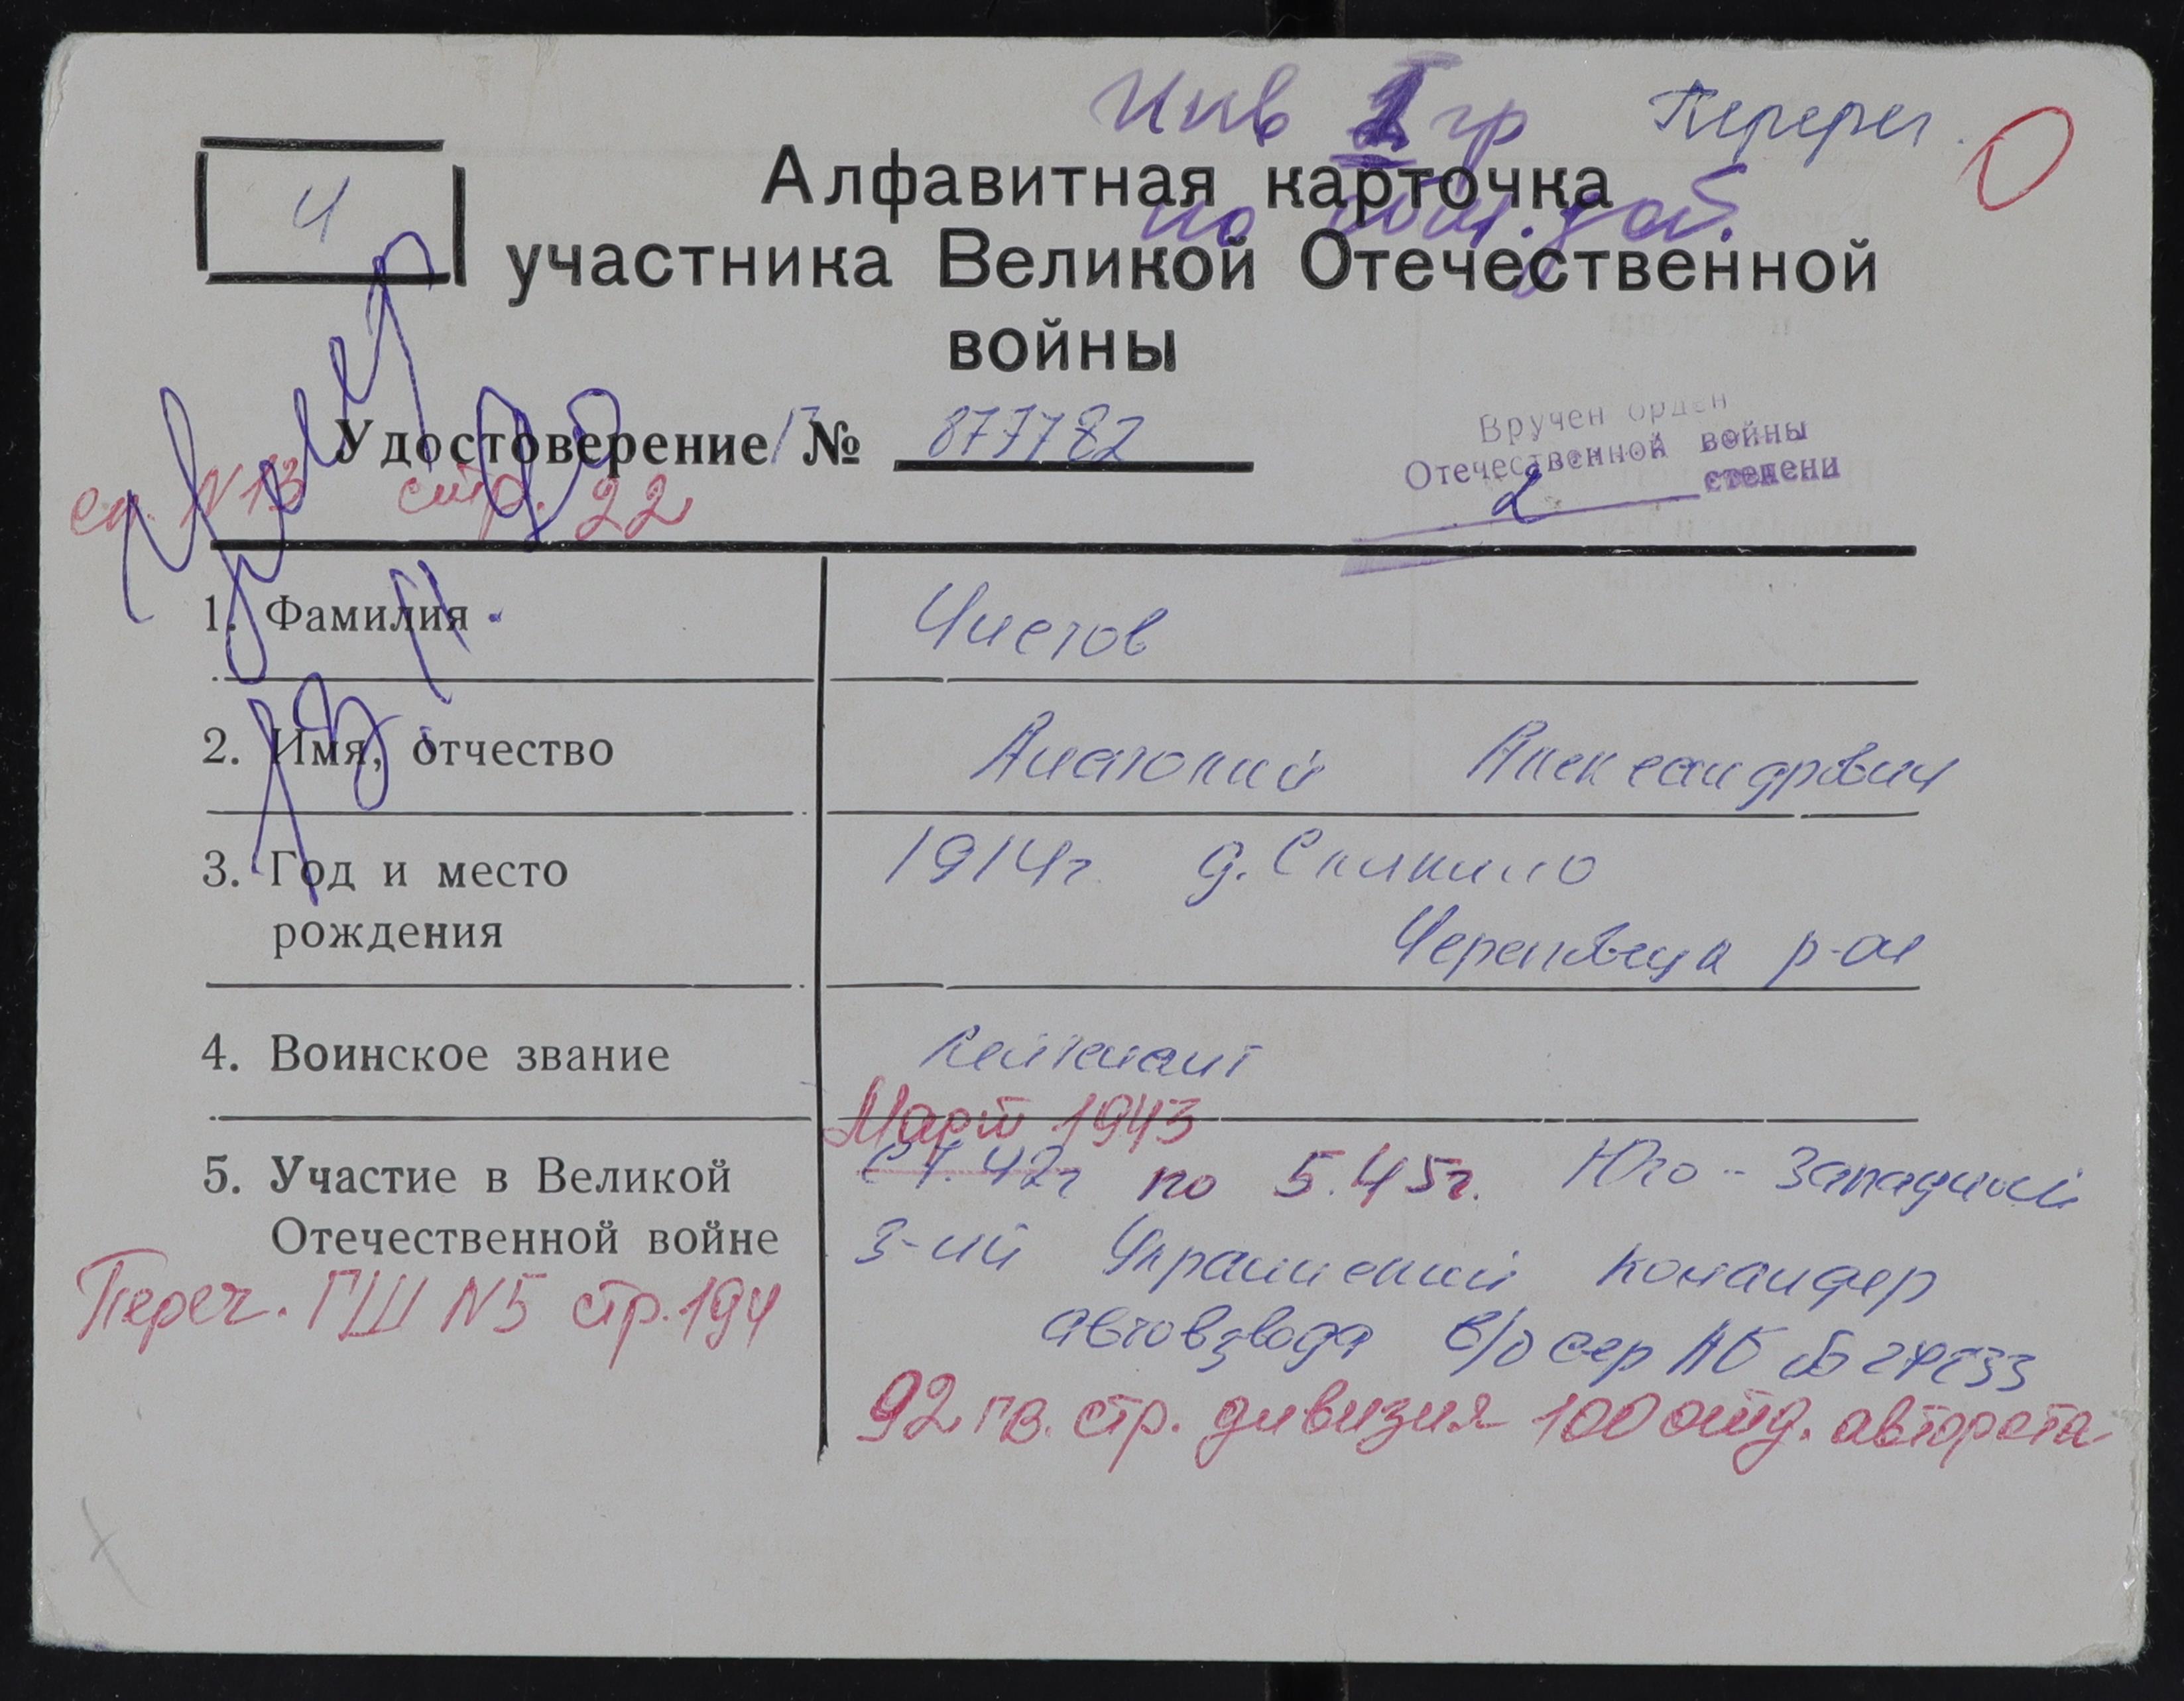 Инв 1 гр
Перерег.
по общ. заб.
Ч
Алфавитная карточка
участника Великой Отечественной
войны
Удостоверение Г № 877782
Вручен орден
Отечественной войны
2 степени
сп. N 13 стр. 22
умер
1. Фамилия Чистов
2. Имя, отчество Анатолий Александрович
3. Год и место 1914г. д.
рождения Череповецк р-он
4. Воинское звание Лейтенант
Март 1943
5. Участие в Великой с 7.42г по 5.45г. Юго-Западный
Отечественной войне 3-ий Украинский командир
Переч. ГШ N5 стр. 194
автовзвода в/о сер АБ №
92 гв. стр. дивизия 100 отд. авторота